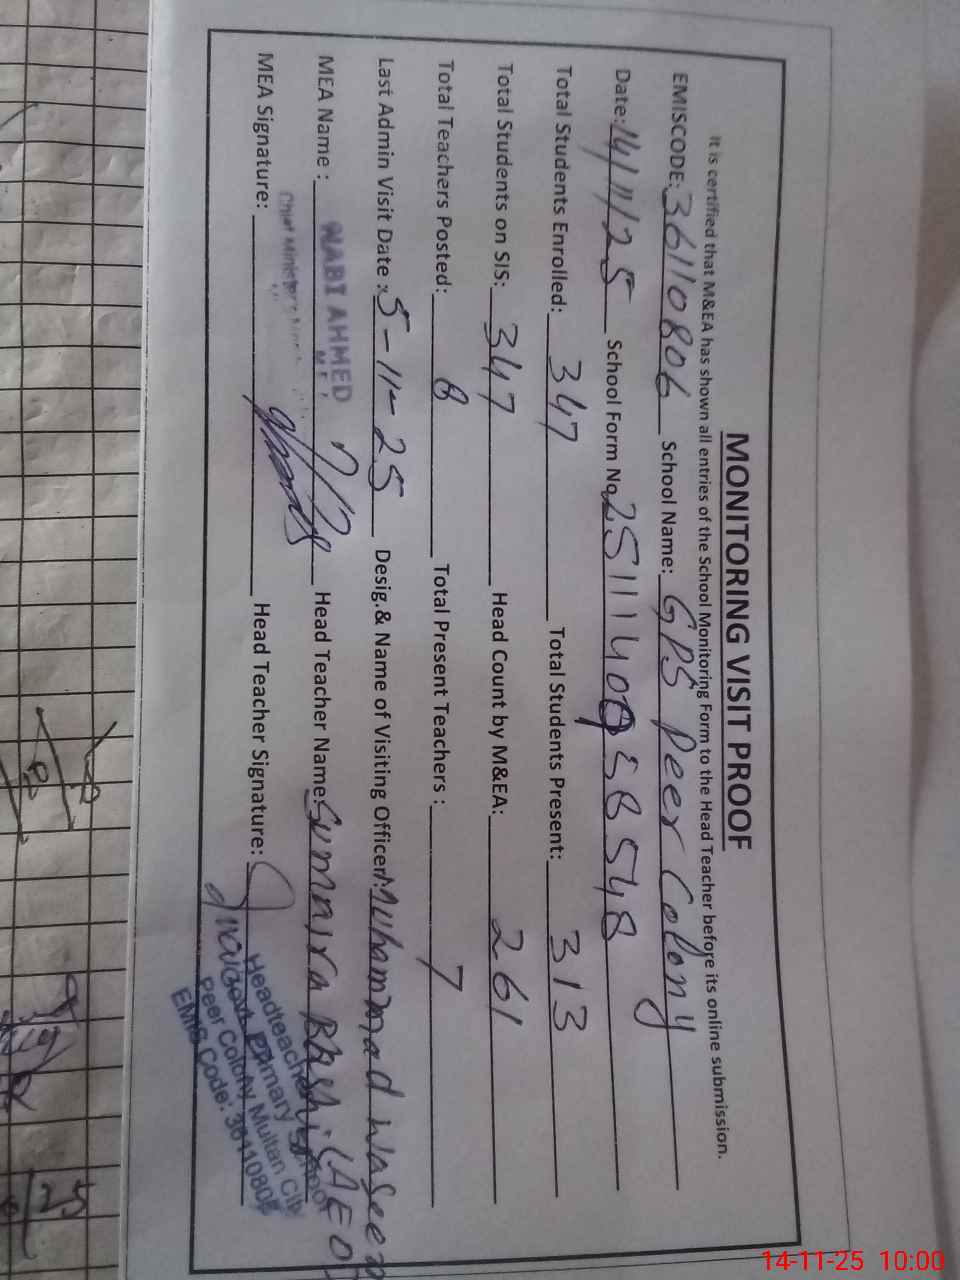 MONITORING VISIT PROOF
It is certified that M&EA has shown all entries of the School Monitoring Form to the Head Teacher before its online submission.
EMISCODE: 36110806 School Name: GPS Peer Colony
Date: 14/11/25 School Form No 2511140938548
Total Students Enrolled: 347 Total Students Present: 313
Total Students on SIS: 347 Head Count by M&EA: 261
Total Teachers Posted: 8 Total Present Teachers : 7
Last Admin Visit Date : 5-11-25 Desig.& Name of Visiting Officer: Muhammad Waseem (AEO
MEA Name : NABI AHMED Head Teacher Name: Sumaira Bashir
Chief Minister's
MEA Signature: Head Teacher Signature:
Headteacher
Govt. Primary School
Peer Colony Multan City
EMIS Code: 36110806
14-11-25 10:00